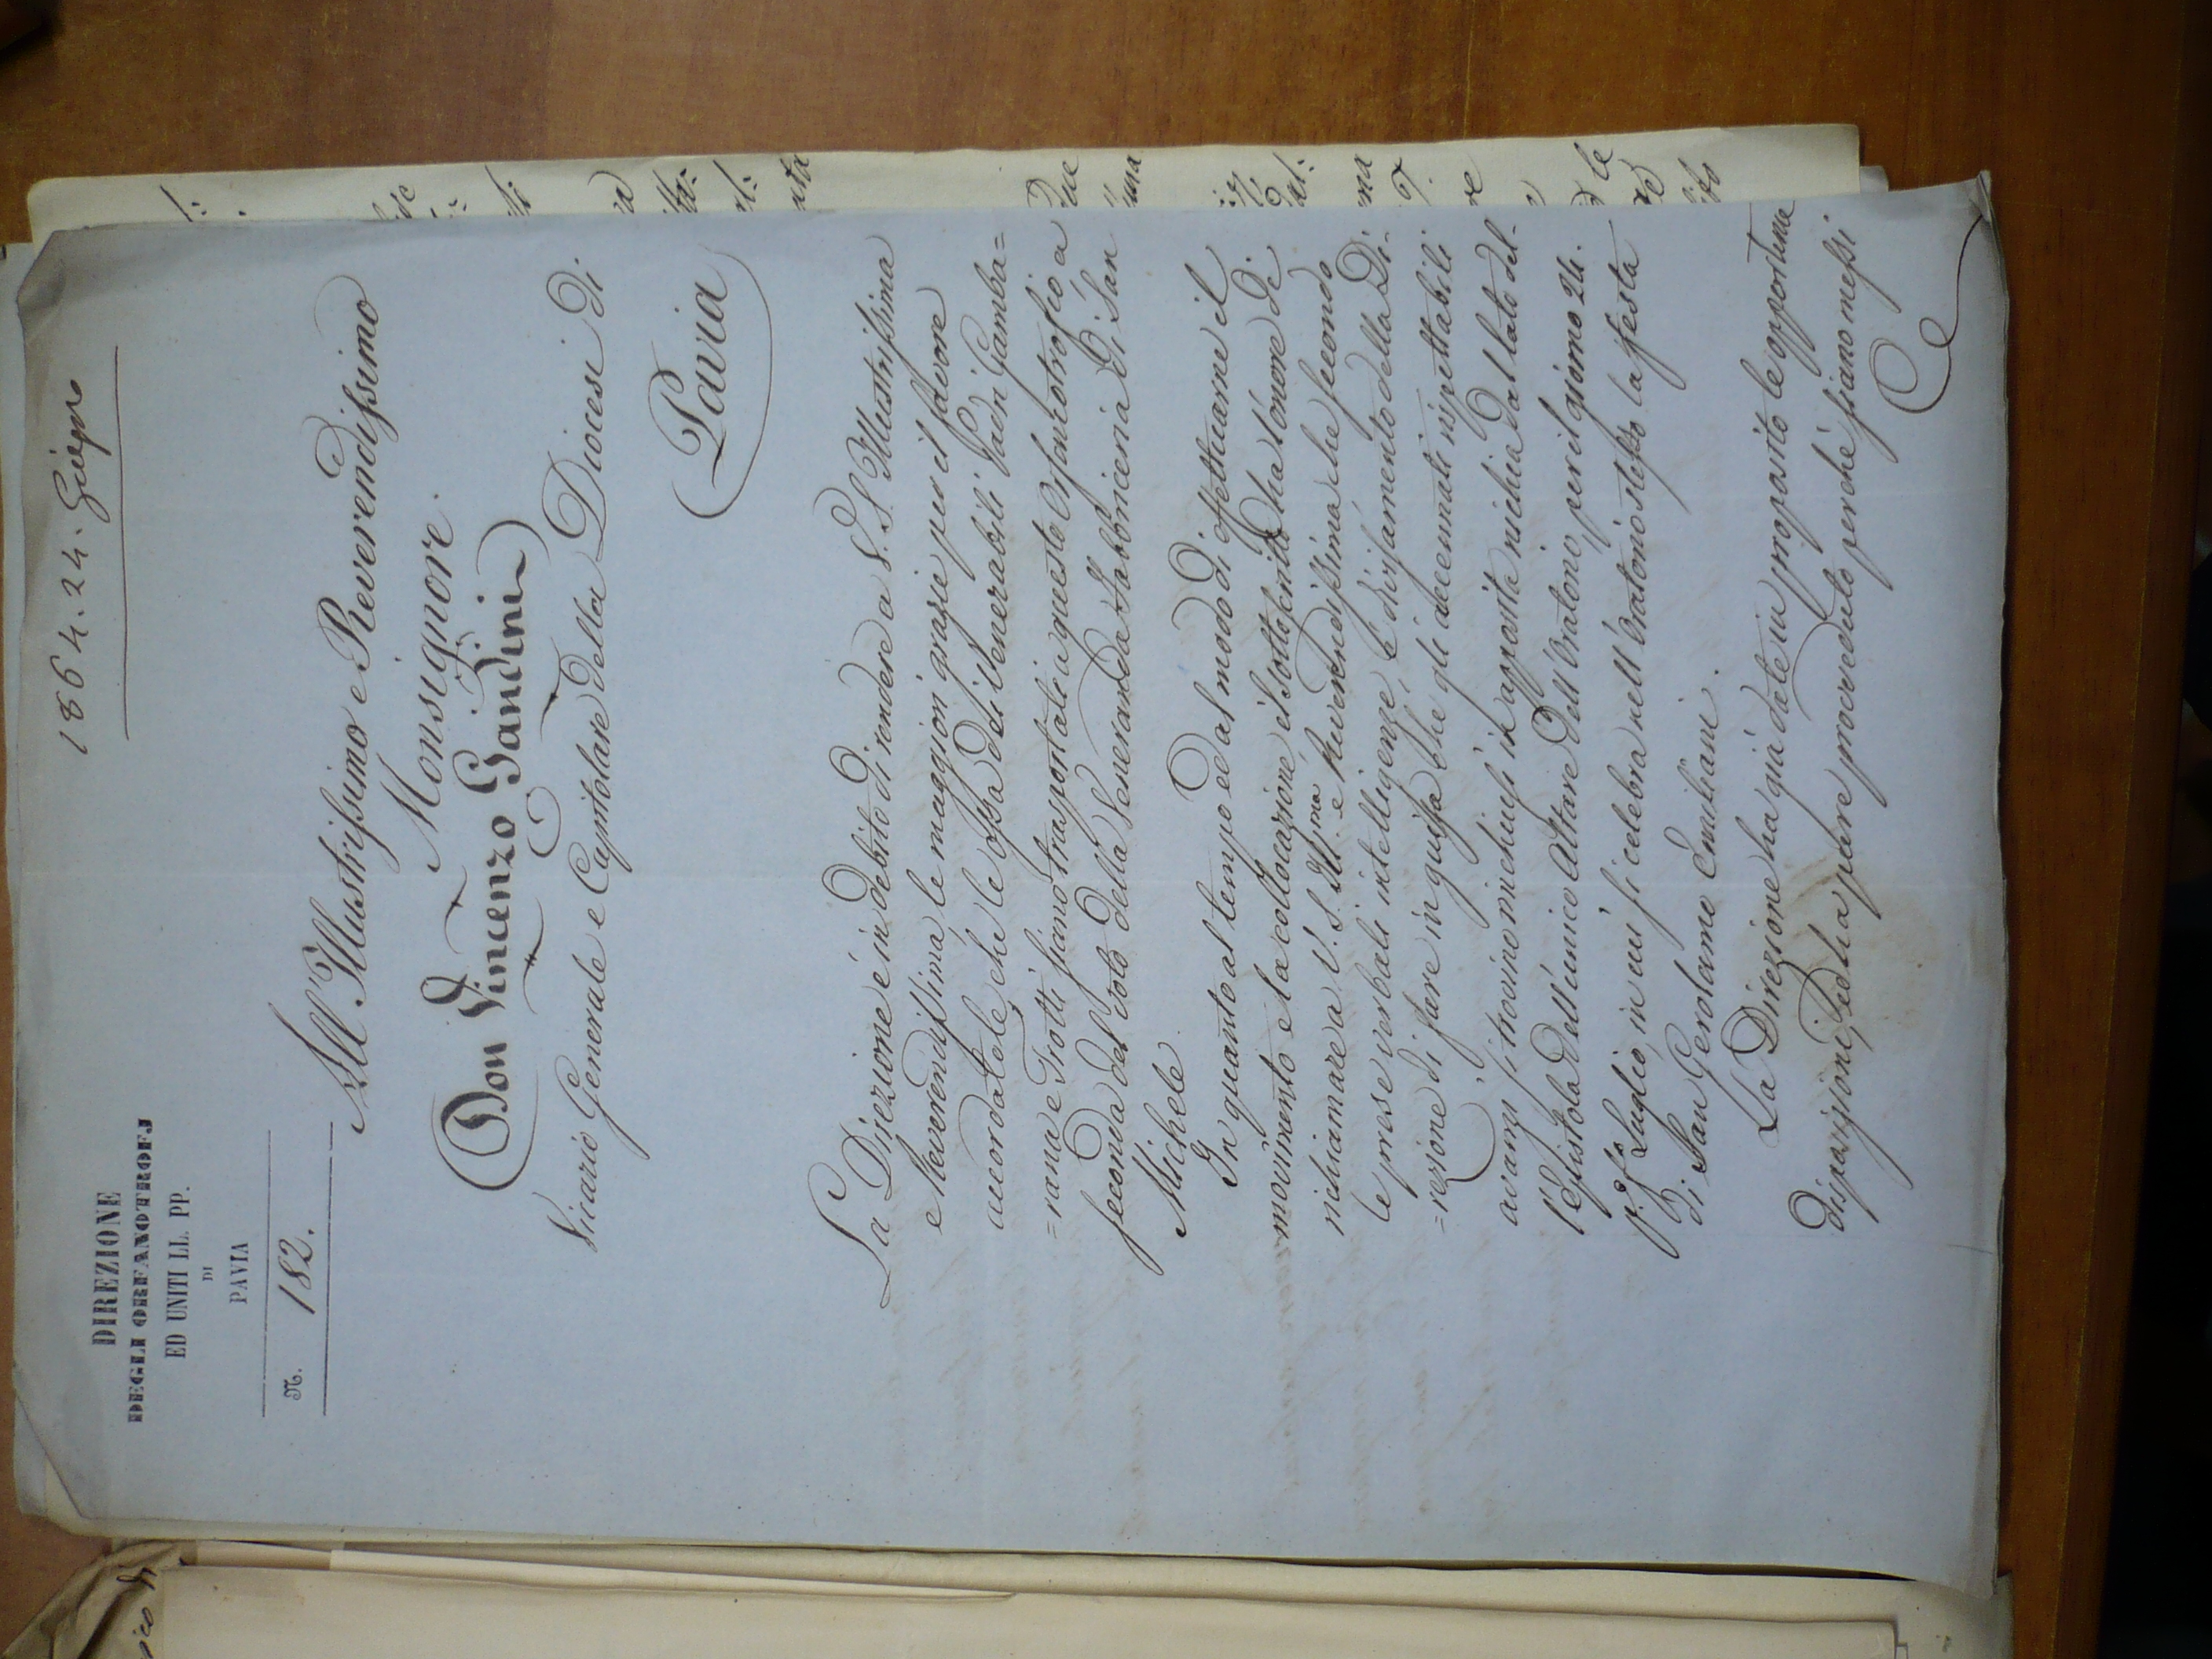 1864. 24. Giugno
DIREZIONE
DEGLI ORFANOTROFJ
ED UNITI LL. PP.
DI
PAVIA
N. 182.
All' Illustrissimo e Reverendissimo
Monsignore
Don Vincenzo Gandini
Vicario Generale e Capitolare della Diocesi di
Pavia
La Direzione è in debito di rendere a S. S. Illustrissima
e Reverendissima le maggiori grazie per il favore
accordatole, ch'le ossa dei Venerabili Padri Gamba=
=rana e Trotti siano trasportati a questo Orfanotrofio a
seconda del voto della Veneranda Fabbriceria di San
Michele.
In quanto al tempo ed al modo di effettuarne il
movimento e la collocazione, il sottoscritto ha l'onore di
richiamare a V. S. Ill.ma e Reverendissima che secondo
le prese verbali intelligenze, è divisamento della Di-
=rezione di fare in guisa che gli accennati rispettabili
avanzi si trovino inchiusi in apposita nicchia dal lato del-
l'Epistola dell'unico Altare dell'Oratorio, per il giorno 24.
p.o f.o Luglio, in cui si celebra nell'Oratorio stesso la festa
di San Gerolamo Emiliani.
La Direzione ha già date in proposito le opportune
disposizioni, ed ha pure provveduto perchè siano messi